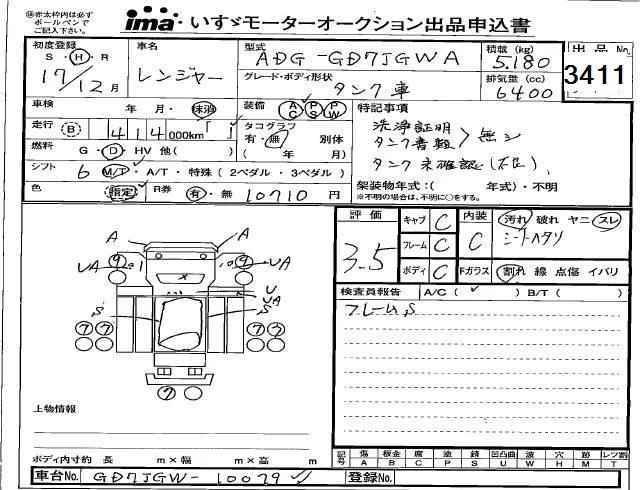 ㊟赤太枠内は必ず
ボールペンで
ご記入下さい。
ima いすゞモーターオークション出品申込書
初度登録
S・H・R
17/12月
車名
レンジャー
型式
ADG-GD7JGWA
積載 (kg)
5.180
出品No.
3411
グレード・ボディ形状
タンク車
排気量 (cc)
6400
車検 年 月・抹消
装備 AC PS PW
特記事項
走行 B 414000km
タコグラフ 別体
有・無
( 年 月)
洗浄証明
タンク書類 無シ
燃料 G・D・HV 他( )
シフト 6 M/T・A/T・特殊(2ペダル・3ペダル)
タンク未確認(不正)、
色 指定 R券 有・無 10710円
架装物年式:( 年式)・不明
※不明の場合は、不明に○をする。
評価
3.5
キャブ C
フレーム C
ボディ C
内装
C
Fガラス
汚れ 破れ ヤニ スレ
シートヘタリ
割れ 線 点傷 イバリ
検査員報告 A/C( ✓ ) B/T( )
フレームS
A A
9 1 10 9
UA UA
U
UA
S S
7 7 7 7
7
上物情報
ボディ内寸約 長 m×幅 m×高 m
記号 傷A 板金B 腐C 塗P 錆S 凹凸曲U 波W 穴H 跡M レツ割T
車台No. GD7JGW-10079
登録No.